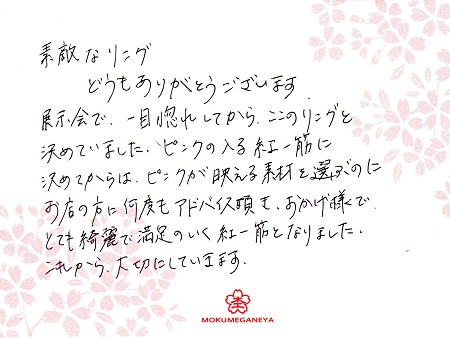 素敵なリング
どうもありがとうございます
展示会で、一目惚れしてから、ここのリングと
決めていました。ピンクの入る紅一筋に
決めてからは、ピンクが映える素材を選ぶのに
お店の方に何度もアドバイス頂き、おかげ様で、
とても綺麗で満足のいく紅一筋となりました。
これから、大切にしていきます。
MOKUMEGANEYA